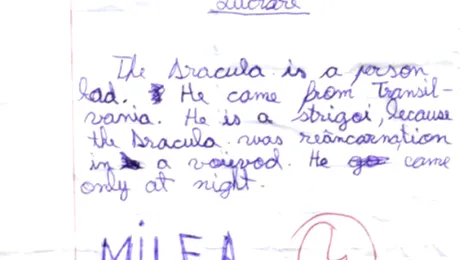 Lucrare
The Dracula is a person
bad. He came from Transil-
vania. He is a strigoi, because
the Dracula was reâncarnation
in a voievod. He go came
only at night.
MILEA